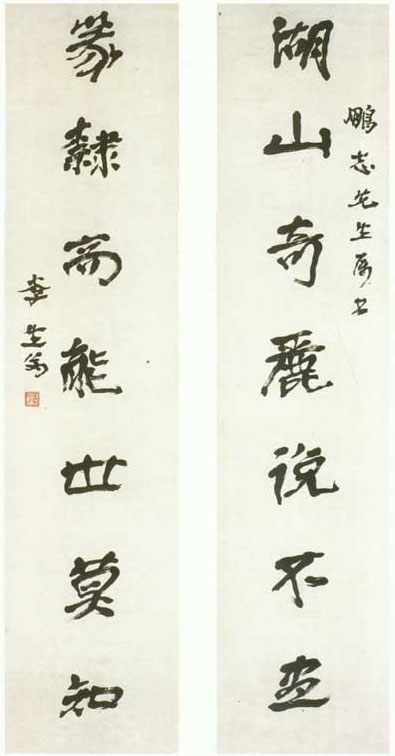 鵬志先生属书
湖山奇麗説不盡
篆隸高能世莫知
李生翁